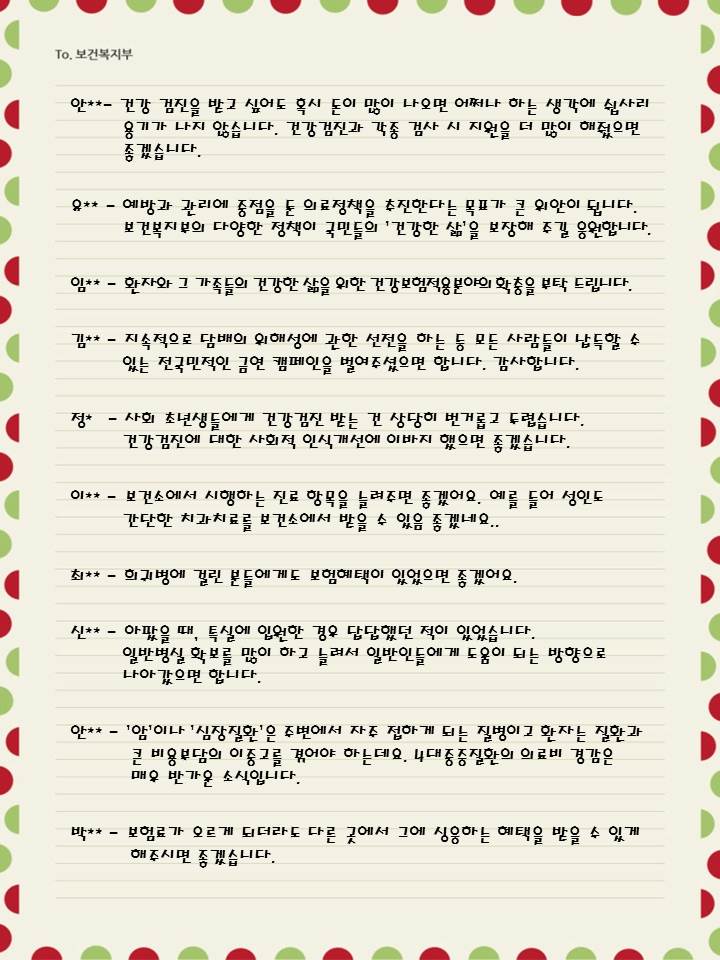 To. 보건복지부
안**- 건강 검진을 받고 싶어도 혹시 돈이 많이 나오면 어쩌나 하는 생각에 쉽사리
용기가 나지 않습니다. 건강검진과 각종 검사 시 지원을 더 많이 해줬으면
좋겠습니다.
유** - 예방과 관리에 중점을 둔 의료정책을 추진한다는 목표가 큰 위안이 됩니다.
보건복지부의 다양한 정책이 국민들의 '건강한 삶'을 보장해 주길 응원합니다.
임** - 환자와 그 가족들의 건강한 삶을 위한 건강보험적용분야의 확충을 부탁 드립니다.
김** - 지속적으로 담배의 위해성에 관한 선전을 하는 등 모든 사람들이 납득할 수
있는 전국민적인 금연 캠페인을 벌여주셨으면 합니다. 감사합니다.
정* - 사회 초년생들에게 건강검진 받는 건 상당히 번거롭고 두렵습니다.
건강검진에 대한 사회적 인식개선에 이바지 했으면 좋겠습니다.
이** - 보건소에서 시행하는 진료 항목을 늘려주면 좋겠어요. 예를 들어 성인도
간단한 치과치료를 보건소에서 받을 수 있음 좋겠네요..
최** - 희귀병에 걸린 분들에게도 보험혜택이 있었으면 좋겠어요.
신** - 아팠을 때, 특실에 입원한 경우 답답했던 적이 있었습니다.
일반병실 확보를 많이 하고 늘려서 일반인들에게 도움이 되는 방향으로
나아갔으면 합니다.
안** - '암'이나 '심장질환'은 주변에서 자주 접하게 되는 질병이고 환자는 질환과
큰 비용부담의 이중고를 겪어야 하는데요. 4대중증질환의 의료비 경감은
매우 반가운 소식입니다.
박** - 보험료가 오르게 되더라도 다른 곳에서 그에 상응하는 혜택을 받을 수 있게
해주시면 좋겠습니다.